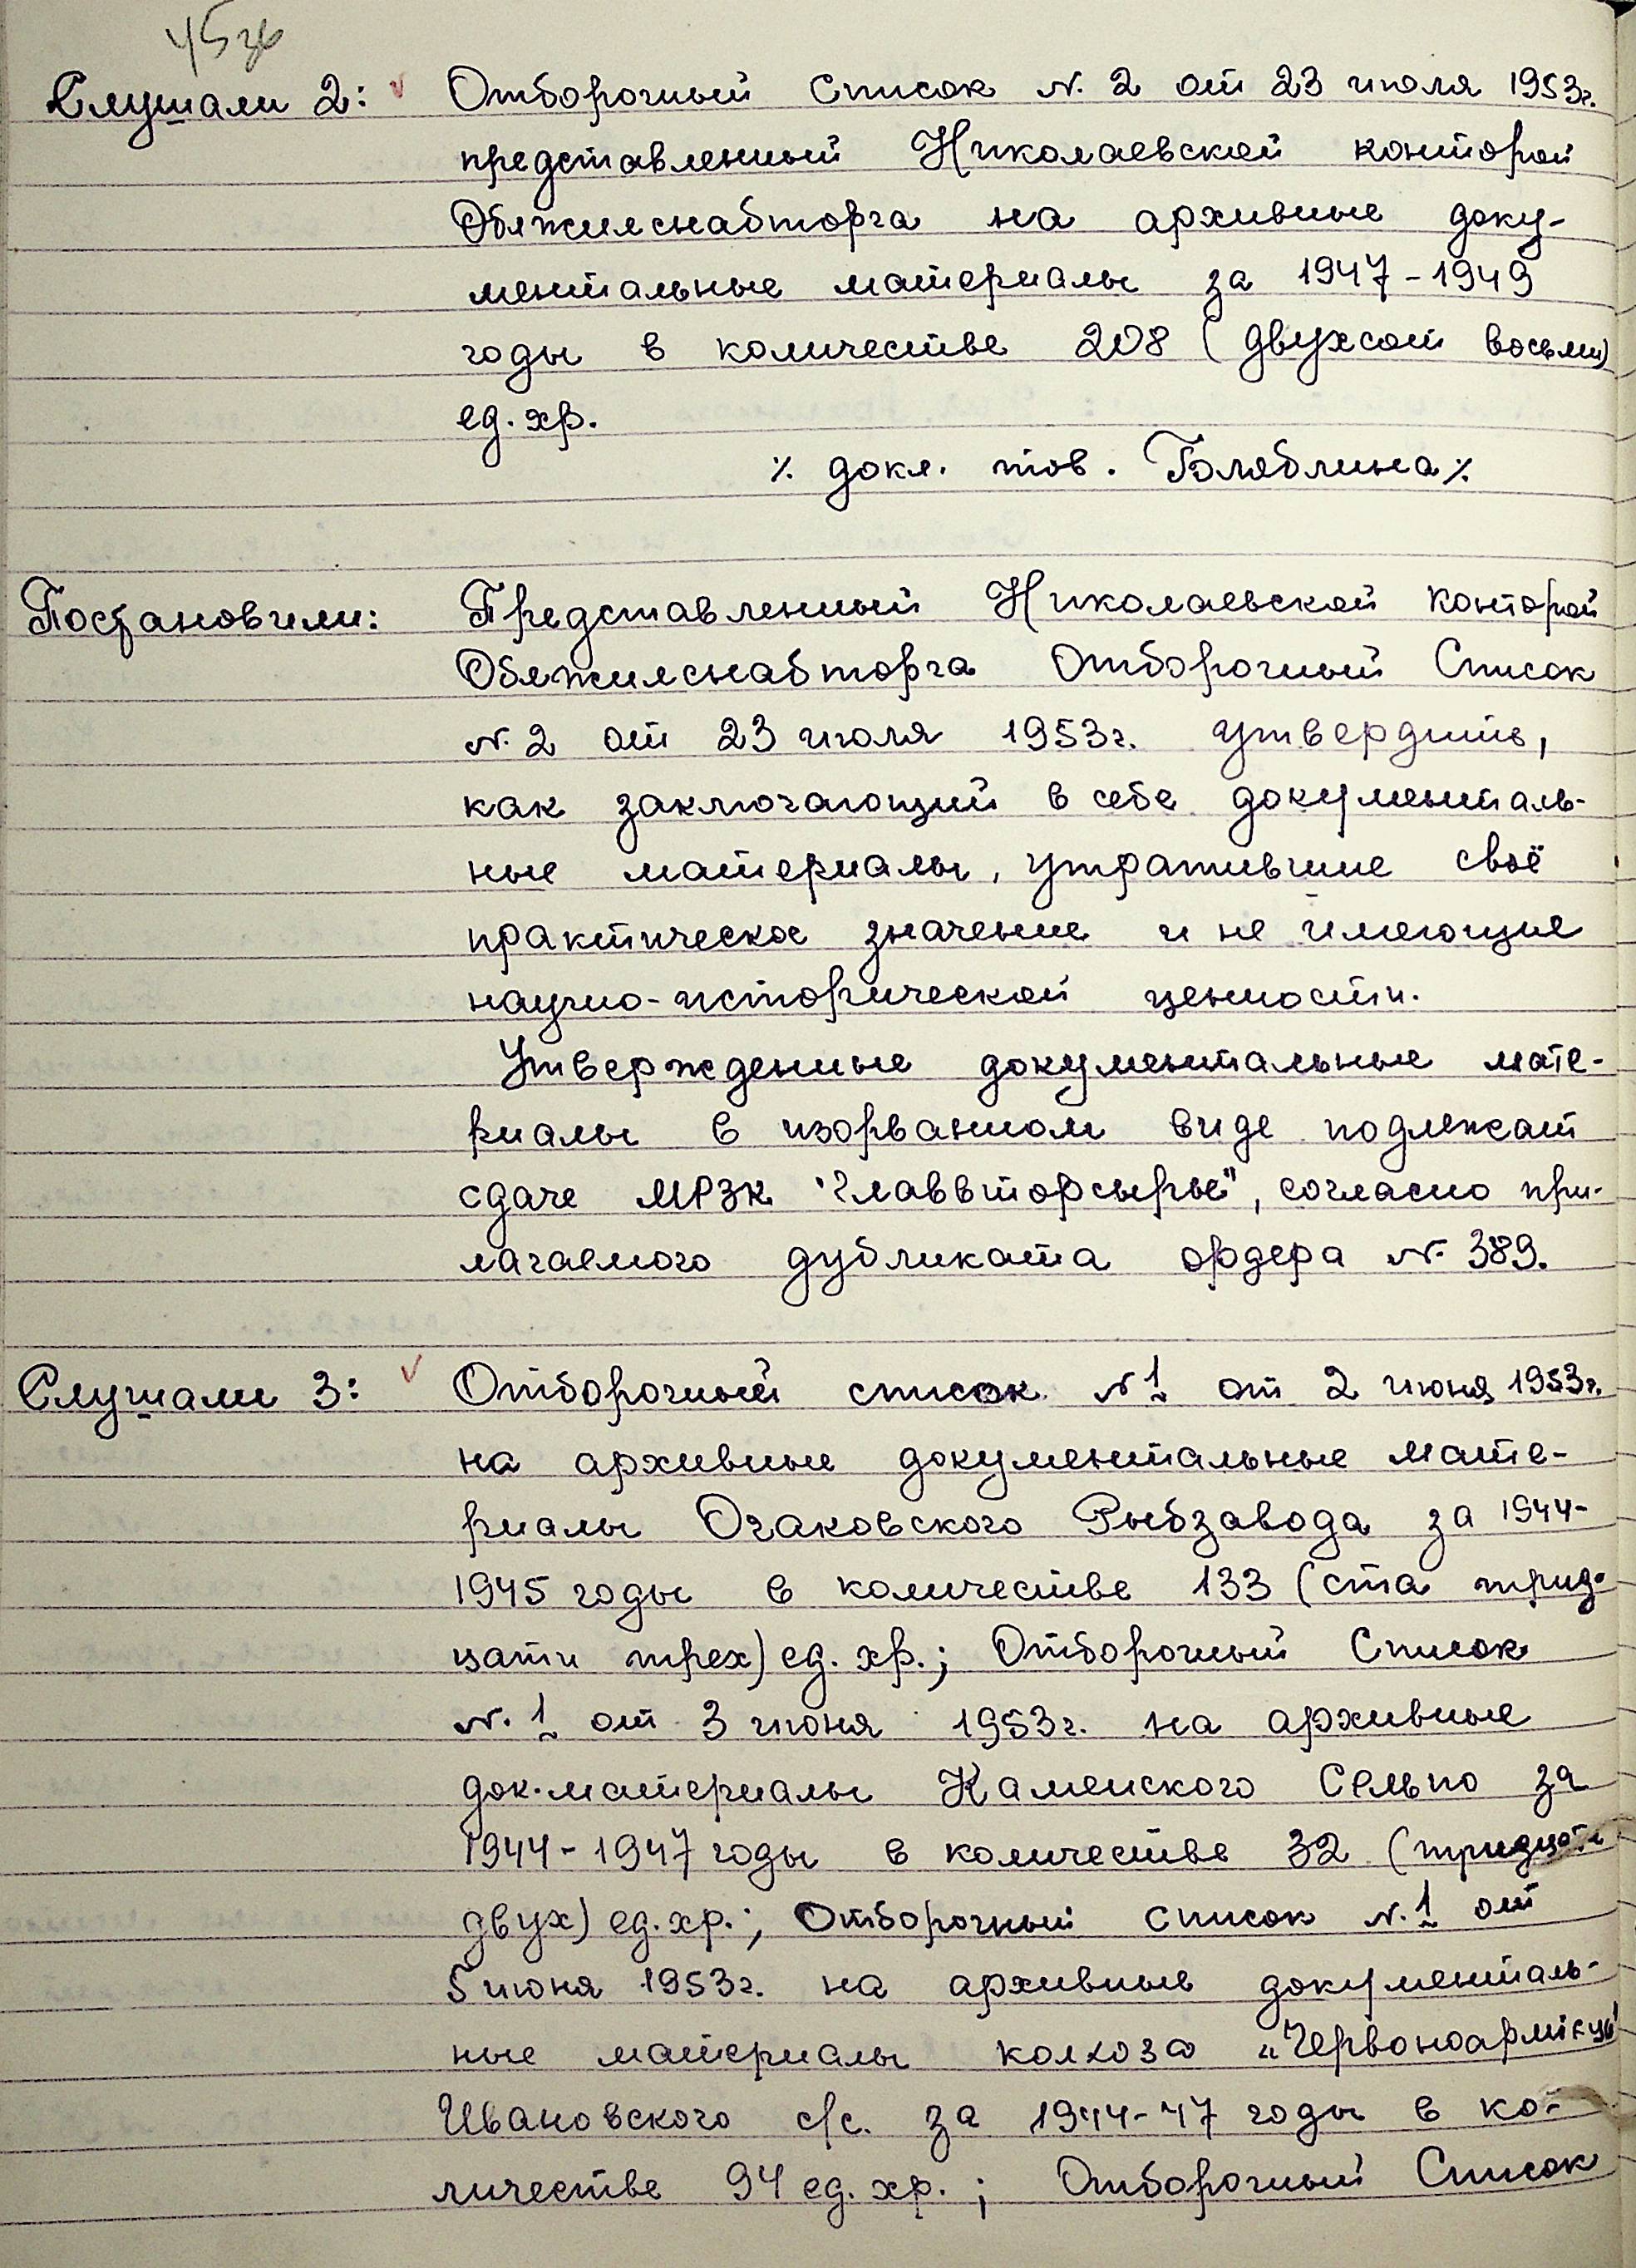 45 зв
Слушали 2: Отборочный Список N. 2 от 23 июля 1953г.
представленный Николаевской конторой
Облжилснабторга на архивные доку-
ментальные материалы за 1947-1949
годы в количестве 208 (двухсот восьми)
ед. хр.
٪ докл. тов. Голяблина ٪
Постановили: Представленный Николаевской конторой
Облжилснабторга Отборочный Список
N. 2 от 23 июля 1953г. утвердить,
как заключающий в себе документаль-
ные материалы, утратившие своё
практическое значение и не имеющие
научно-исторической ценности.
Утвержденные документальные мате-
риалы в изорванном виде подлежат
сдаче МРЗК "Главвторсырье", согласно при-
лагаемого дубликата ордера N. 389.
Слушали 3: Отборочный список N 1 от 2 июня 1953г.
на архивные документальные мате-
риалы Очаковского Рыбзавода за 1944-
1945 годы в количестве 133 (ста трид-
цати трех) ед. хр.; Отборочный Список
N. 1 от 3 июня 1953г. на архивные
док. материалы Каменского Сельпо за
1944-1947 годы в количестве 32 (тридцати
двух) ед. хр.; Отборочный список N. 1 от
5 июня 1953г. на архивные документаль-
ные материалы колхоза „Червоноармiєць"
Ивановского с/с. за 1944-47 годы в ко-
личестве 94 ед. хр.; Отборочный Список